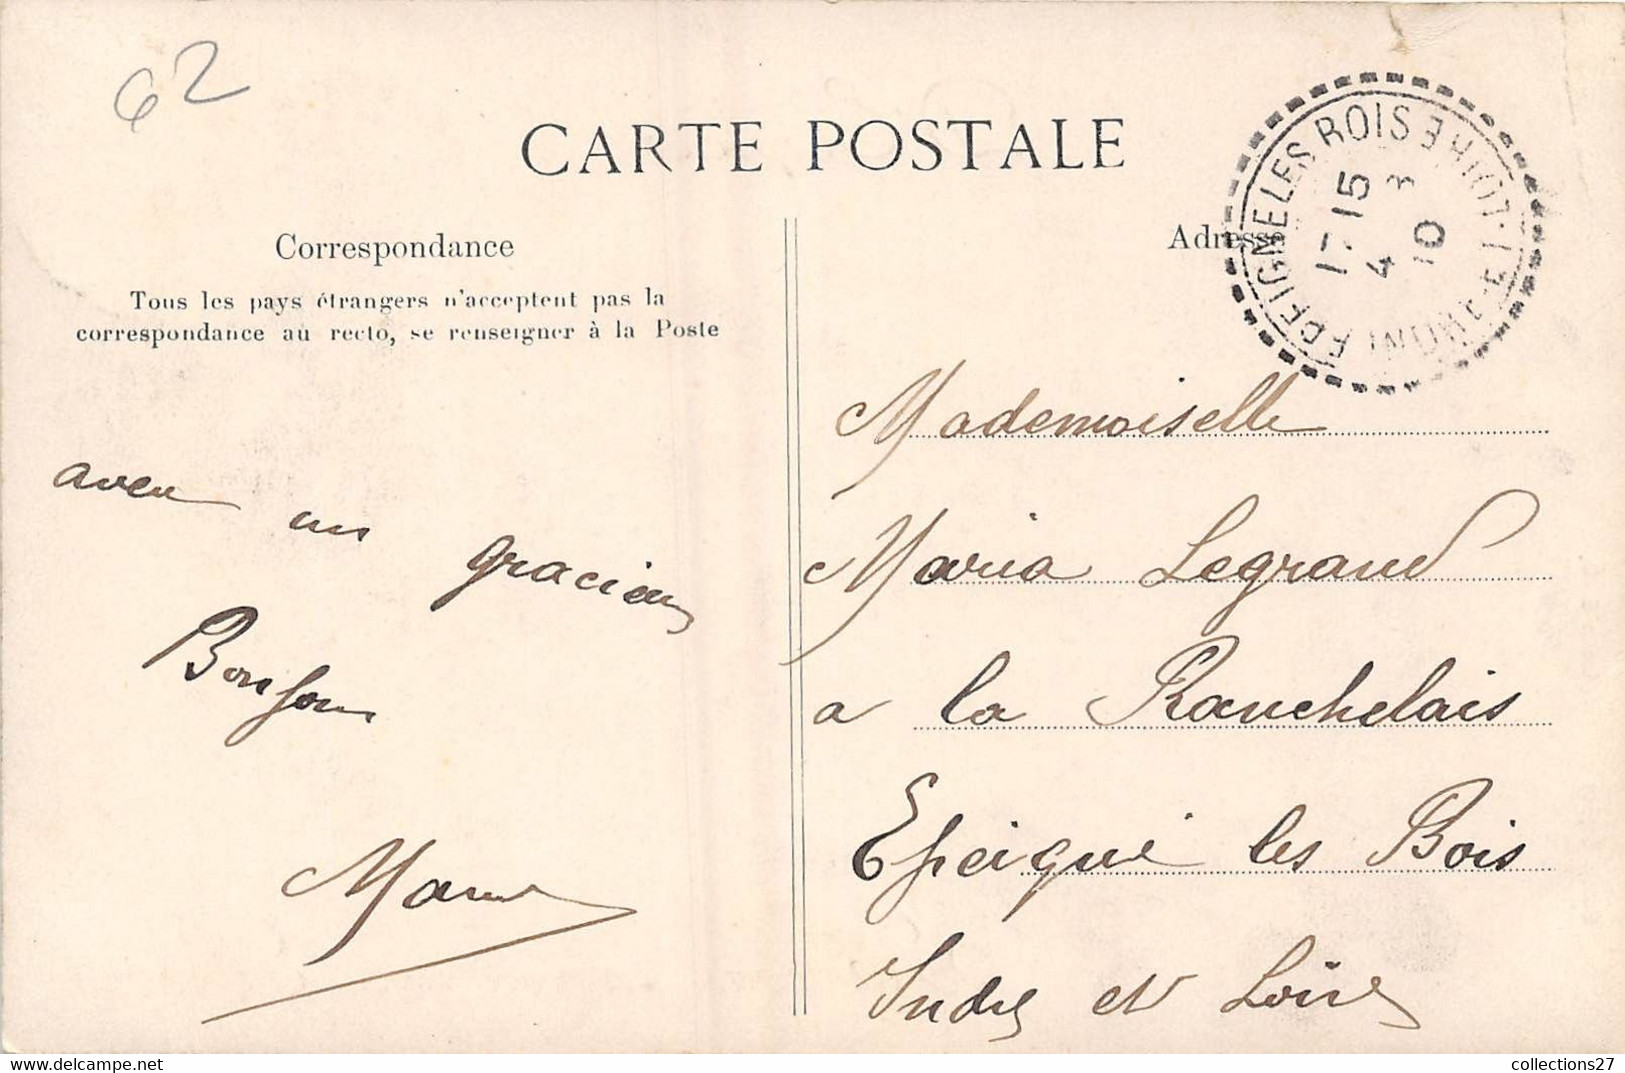 62
CARTE POSTALE
Correspondance
Tous les pays étrangers n'acceptent pas la
correspondance au recto, se renseigner à la Poste
avec un gracieux
Bonjour
Marie
Adresse
EPEIGNE LES BOIS
INDRE-ET-LOIRE
17-15
4 3
10
Mademoiselle
Maria Legrand
a la Rauchelais
Epeigné les Bois
Indre et Loire
delcampe.net
collections27